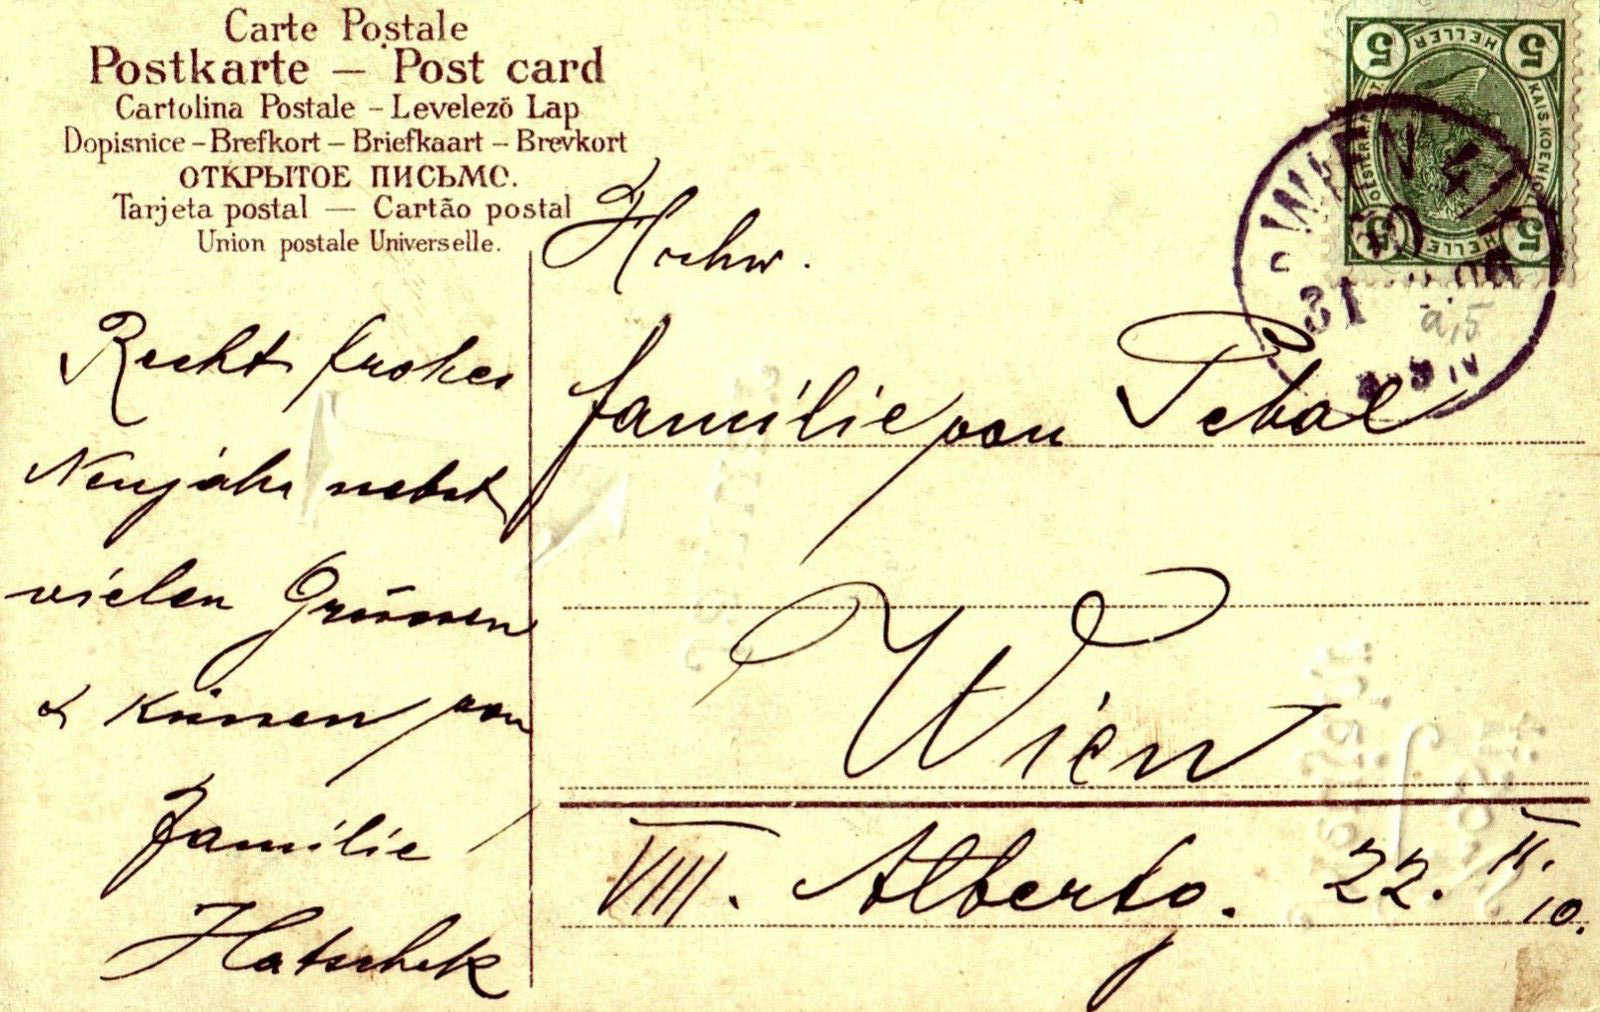 Carte Postale
Postkarte – Post card
Cartolina Postale – Levelező Lap
Dopisnice – Brefkort – Briefkaart – Brevkort
ОТКРЫТОЕ ПИСЬМО.
Tarjeta postal — Cartão postal
Union postale Universelle.
Recht frohes
Neujahr nebst
vielen Grüssen
& Küssen von
Familie
Hatschek
Hochw.
Familie von Pebal
Wien
VIII. Albertg. 22. II.
10.
5 HELLER 5
WIEN
31
a,5